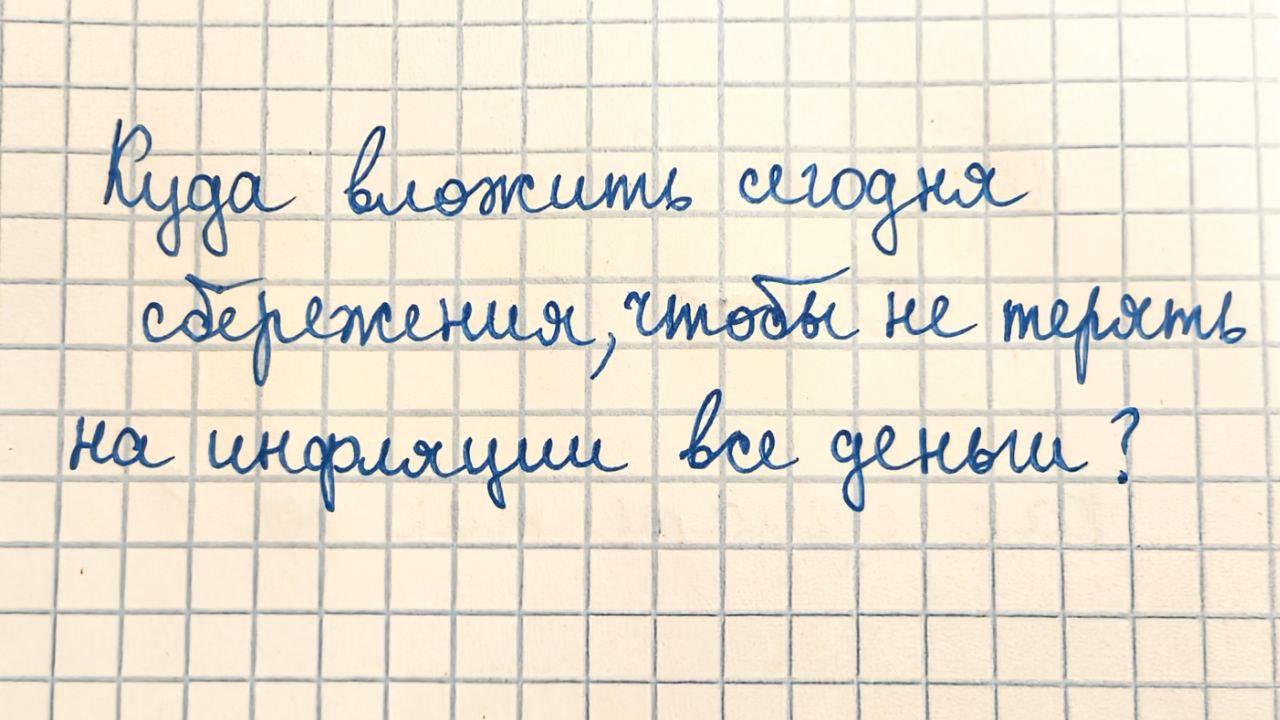 Куда вложить сегодня
сбережения, чтобы не терять
на инфляции все деньги?